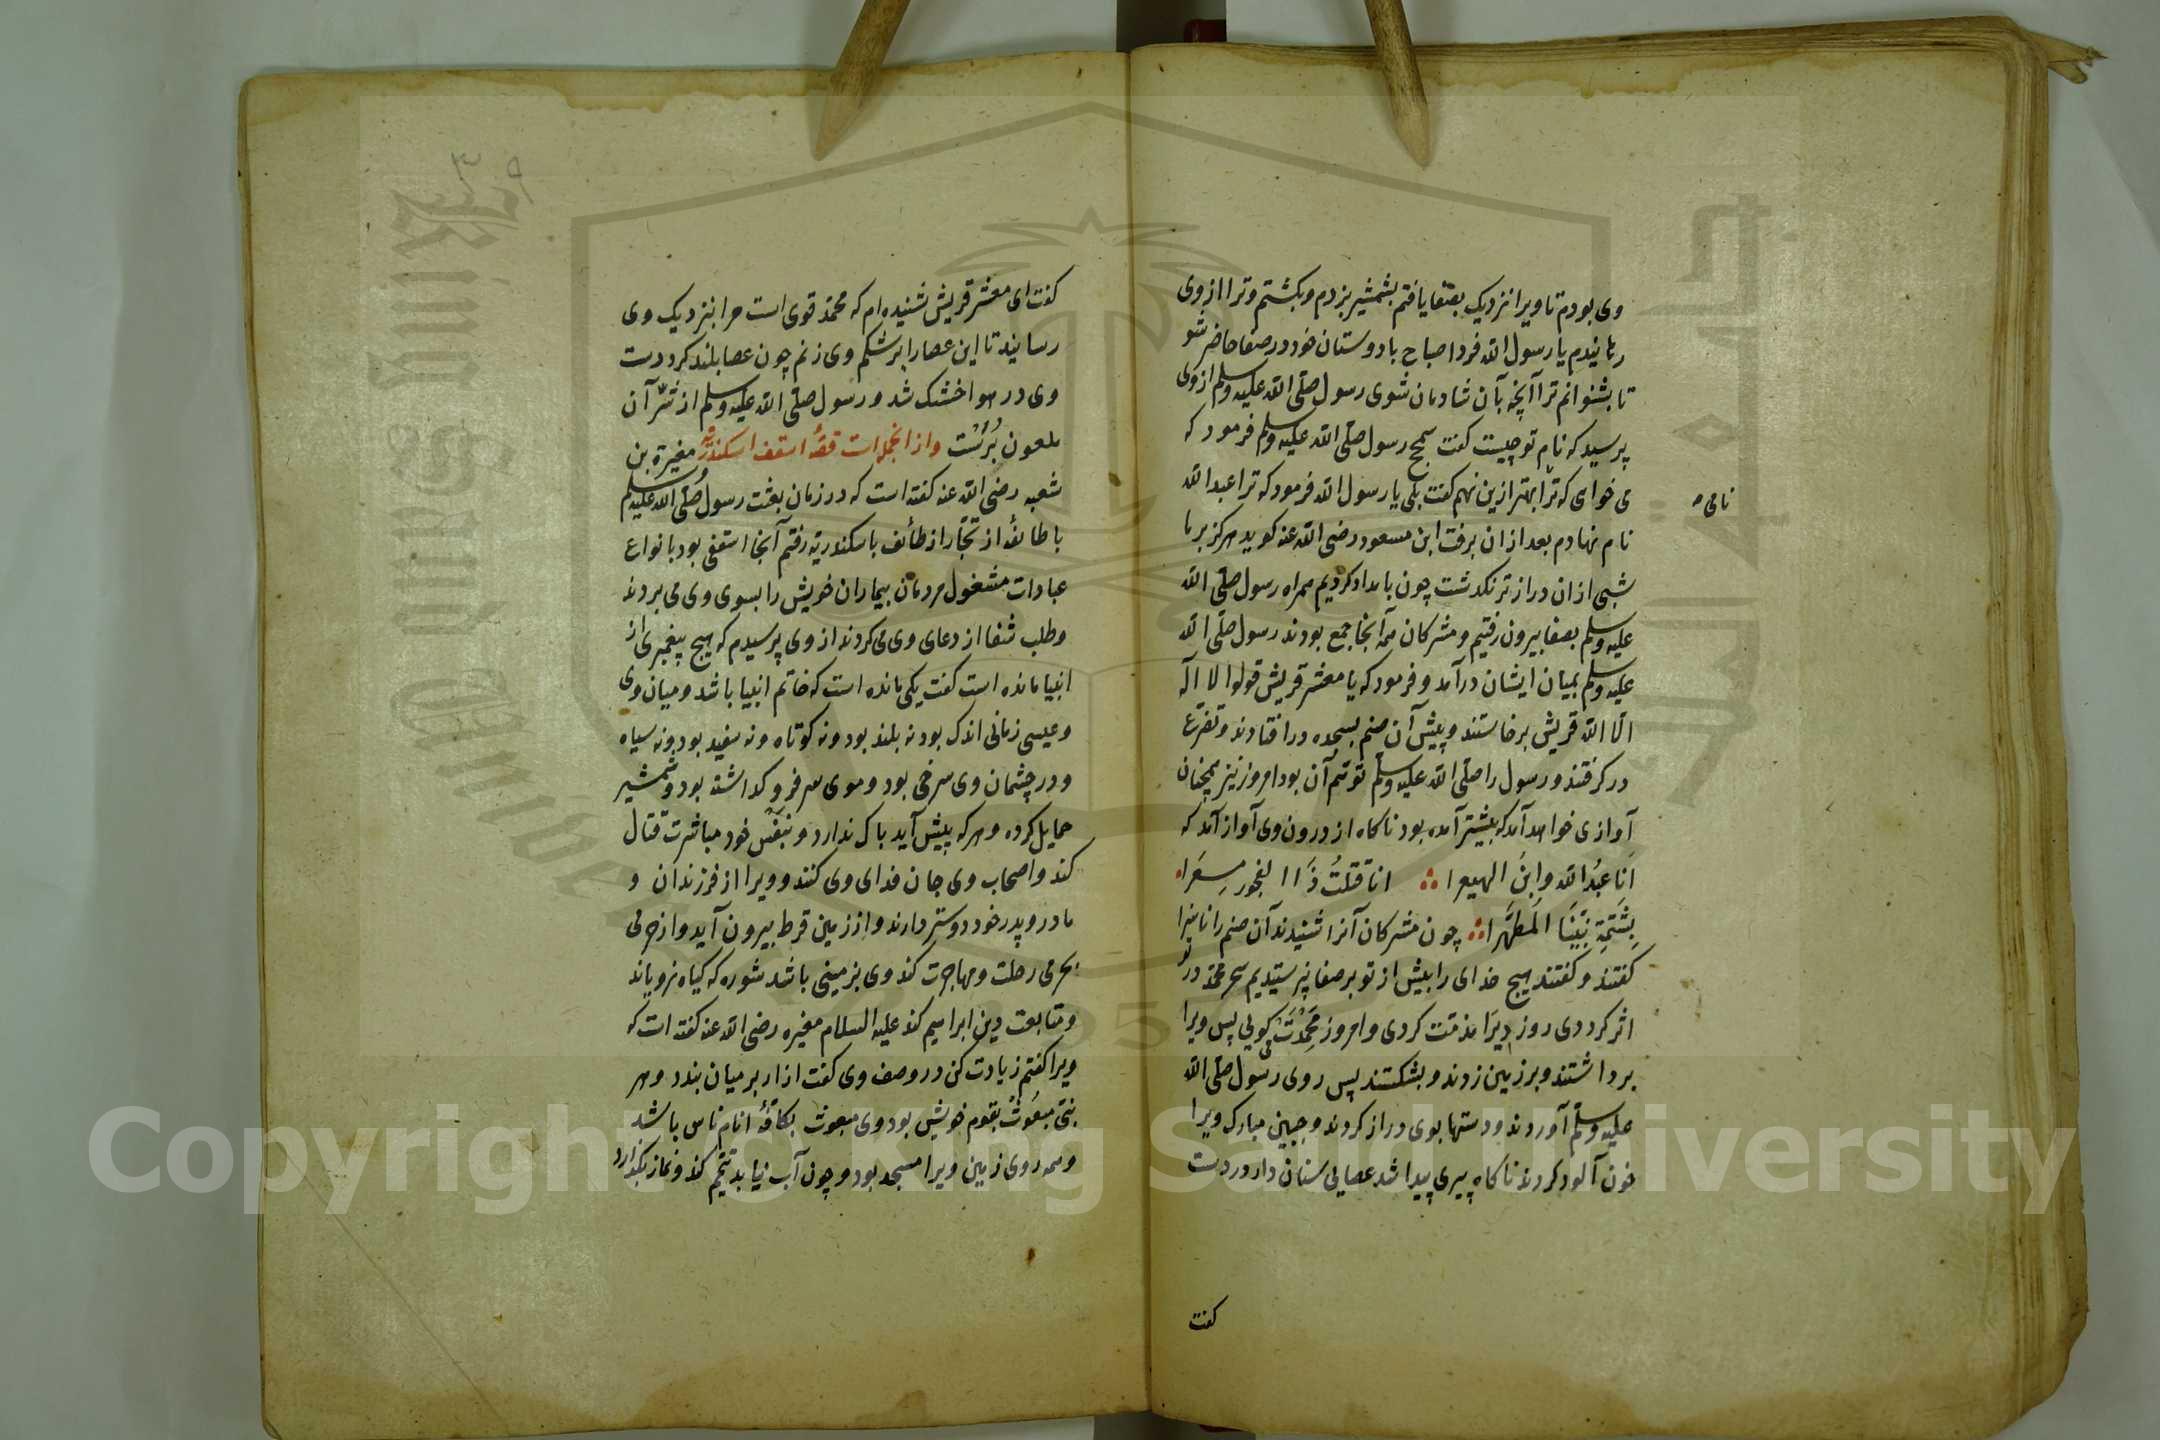 وی بودم تا ویرا نزدیک بصفا یافتم بشمشیر بزدم و بکشتم و ترا از وی
رهانیدم یا رسول الله فردا صباح با دوستان خود در صفا حاضر شو
تا بشنوانم ترا آنچه بآن شادمان شوی رسول صلّی الله علیه وسلم از وی
پرسید که نام تو چیست گفت سمحج رسول صلّی الله علیه وسلم فرمود که
می خواهی که ترا بهتر ازین نهم گفت بلی یا رسول الله فرمود که ترا عبدالله
نامی
نام نهادم بعد ازان برفت ابن مسعود رضی الله عنه گوید هرگز بر ما
شبی ازان درازتر نگذشت چون بامداد کردیم همراه رسول صلّی الله
علیه وسلم بصفا بیرون رفتیم و مشرکان همه آنجا جمع بودند رسول صلّی الله
علیه وسلم بمیان ایشان درآمد و فرمود که یا معشر قریش قولوا لا اله
الّا الله قریش برخاستند و پیش آن صنم بسجده درافتادند و تضرّع
درگرفتند و رسول را صلّی الله علیه وسلّم توهّم آن بود امروز نیز همچنان
آوازی خواهد آمد که پیشتر آمده بود ناگاه از درون وی آواز آمد که
اَنَا عَبدُ الله وابنُ الهیعرا ؞ انا قتلتُ ذَا ا لفجور مِسعَرا
بِشَتمِهِ نَبِیَّنَا المُطهَّرا ؞ چون مشرکان آنرا شنیدند آن صنم را ناسزا
گفتند و گفتند هیچ خدای را پیش از تو بر صفا نپرستیدیم سحر محمّد در تو
اثر کرد دی روز ویرا مذمّت کردی و امروز مَحمِدَت می گویی پس ویرا
برداشتند و بر زمین زدند و بشکستند پس روی رسول صلّی الله
علیه وسلّم آوردند و دستها بوی دراز کردند و جبین مبارک ویرا
خون آلود کردند ناگاه پیری پیدا شد عصایی سنان دار در دست
گفت
٣٩
گفت ای معشر قریش شنیده ام که محمّد قوی است مرا بنزدیک وی
رسانید تا این عصا را بر شکم وی زنم چون عصا بلند کرد دست
وی در هوا خشک شد و رسول صلّی الله علیه وسلم از شرّ آن
ملعون بُرَست وازانجمله است قصّهٔ اسقف اسکندریّه مغیرة بن
شعبه رضی الله عنه گفته است که در زمان بعثت رسول صلّی الله علیه وسلم
با طائفهٔ از تجّار از طائف باسکندریّه رفتم آنجا اسقفی بود بانواع
عبادات مشغول مردمان بیماران خویش را بسوی وی می بردند
و طلب شفا از دعای وی می کردند از وی پرسیدم که هیچ پیغمبری از
انبیا مانده است گفت یکی مانده است که خاتم انبیا باشد و میان وی
و عیسی زمانی اندک بود نه بلند بود و نه کوتاه و نه سفید بود و نه سیاه
و در چشمان وی سرخی بود و موی سر فرو گذاشته بود و شمشیر
حمایل کرده و هر که پیش آید باک ندارد و بنفس خود مباشرت قتال
کند و اصحاب وی جان فدای وی کنند و ویرا از فرزندان و
مادر و پدر خود دوستر دارند و از زمین قرظ بیرون آید و از حرمی
بحرمی رحلت و مهاجرت کند وی بزمینی باشد شوره که گیاه نرویاند
و متابعت دین ابراهیم کند علیه السلام مغیره رضی الله عنه گفته است که
ویرا گفتم زیادت کن در وصف وی گفت ازار بر میان بندد و هر
نبیّ مبعُوثٌ بقوم خویش بود وی مبعوث بکافّهٔ انام ناس باشد
و همه روی زمین ویرا مسجد بود و چون آب نیابد تیمّم کند و نماز بگذارد
Copyright © King Saud University